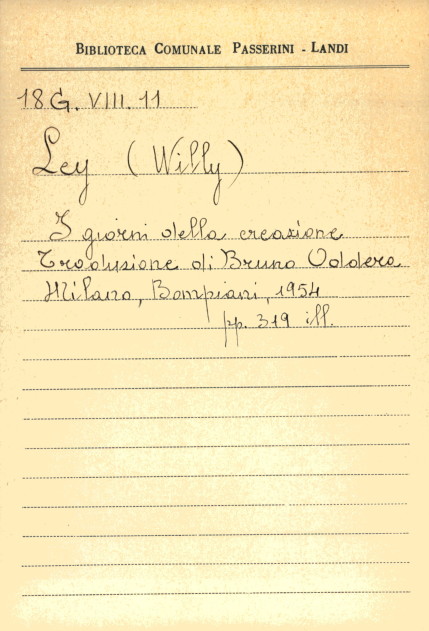 BIBLIOTECA COMUNALE PASSERINI - LANDI
18 G. VIII. 11
Ley (Willy)
I giorni della creazione
Traduzione di Bruno Oddera
Milano, Bompiani, 1954
pp. 319 ill.